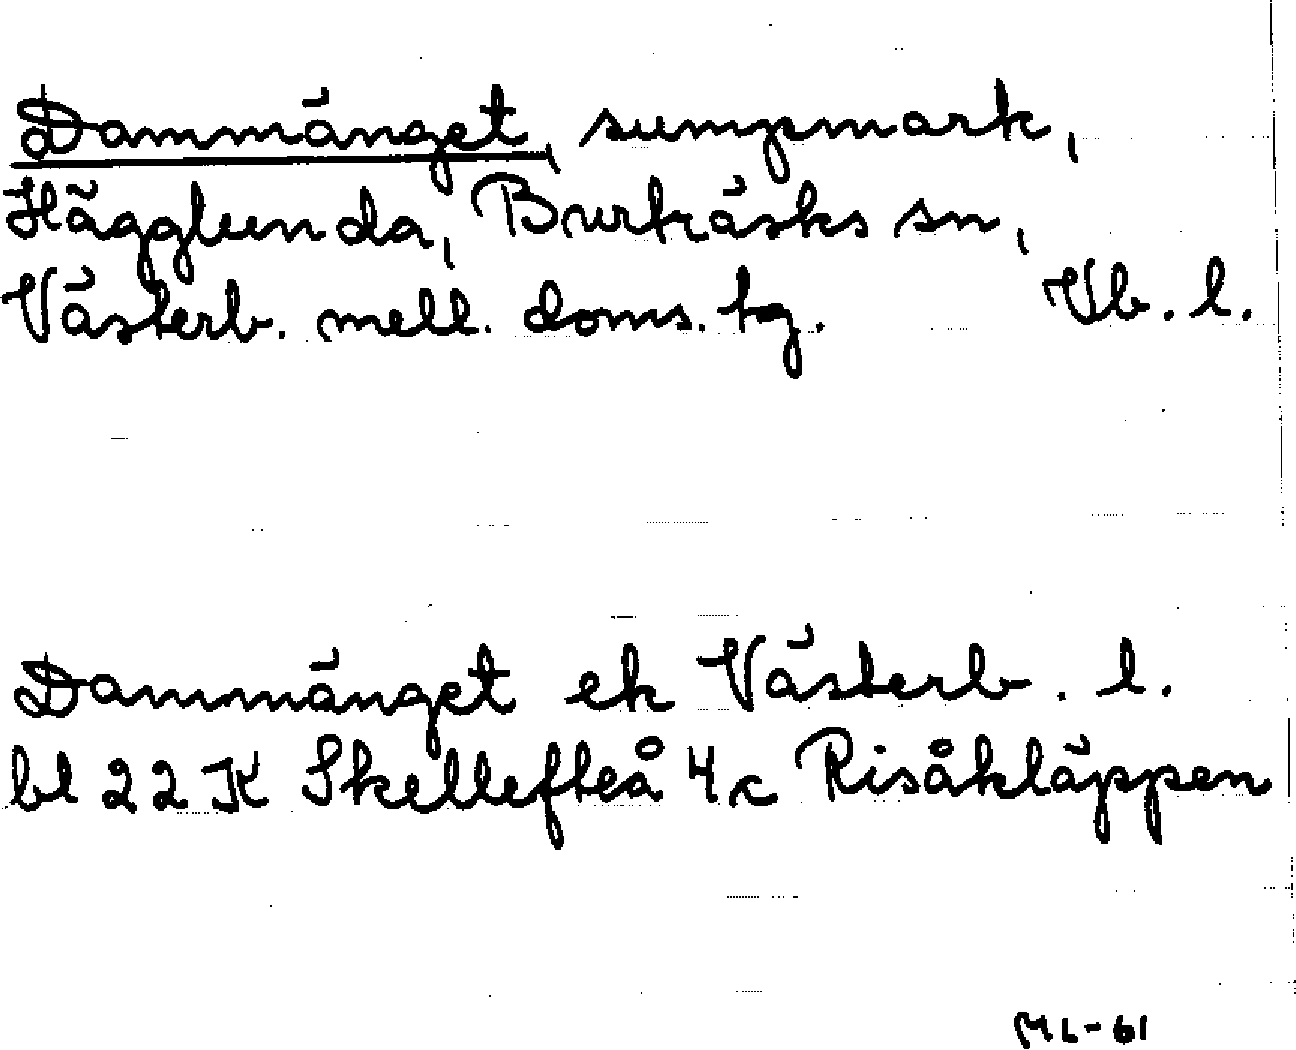 Dammänget, sumpmark,
Hägglunda, Burträsks sn,
Västerb. mell. doms. tg. Vb. l.
Dammänget ek Västerb. l.
bl 22 K Skellefteå 4c Risåkläppen
ML-61